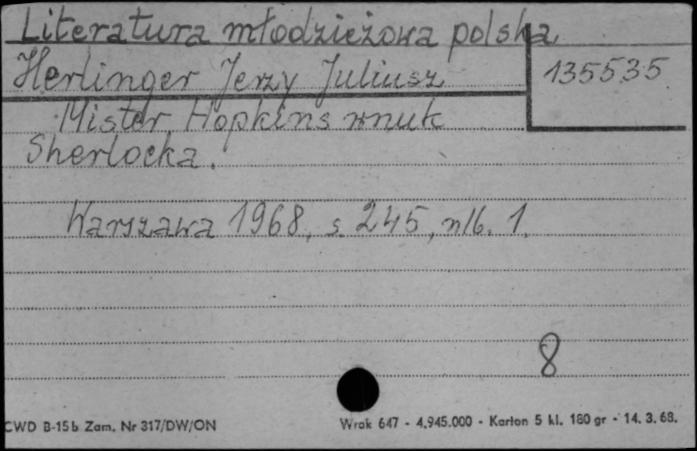 Literatura młodzieżowa polska
Herlinger Jerzy Juliusz
135535
Mister Hopkins wnuk
Sherlocka.
Warszawa 1968, s. 245, nlb. 1.
8
CWD B-15b Zam. Nr 317/DW/ON
Wrok 647 - 4.945.000 - Karton 5 kl. 180 gr - 14. 3. 68.